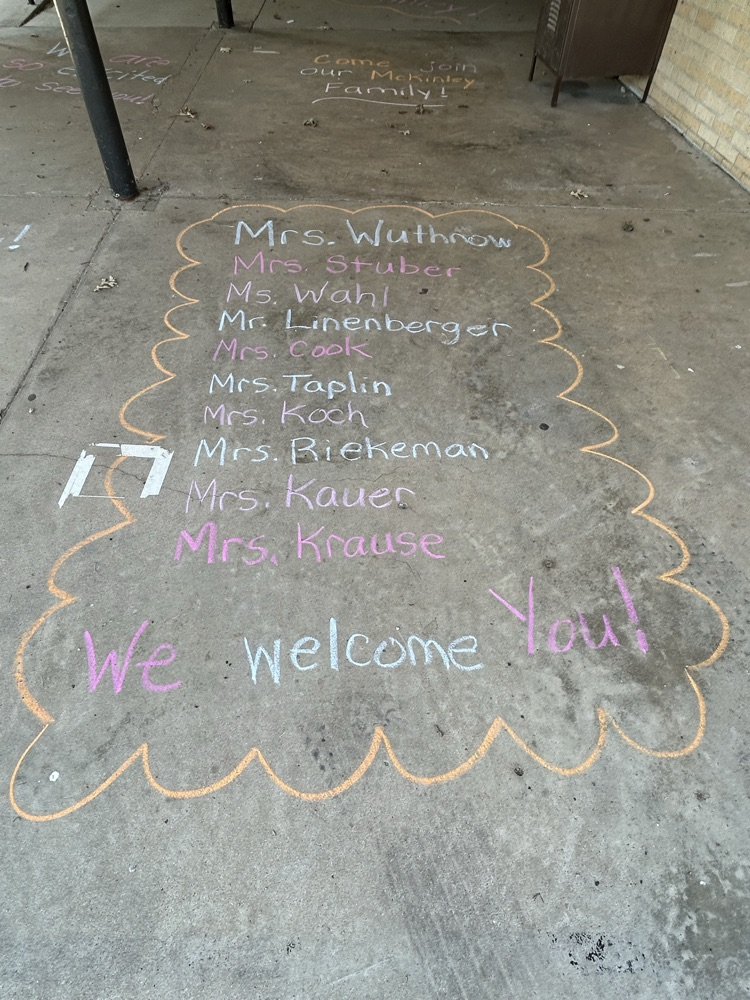 We are
so excited
to see you!
Come join
our McKinley
Family!
Mrs. Wuthnow
Mrs. Stuber
Ms. Wahl
Mr. Linenberger
Mrs. Cook
Mrs. Taplin
Mrs. Koch
Mrs. Riekeman
Mrs. Kauer
Mrs. Krause
We welcome You!